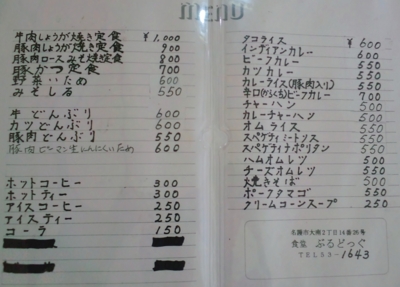 MENU
牛肉しょうが焼き定食 ¥1,000
豚肉しょうが焼き定食 900
豚肉ロースみそ焼定食 800
豚かつ定食 700
野菜いため 500
みそしる 550
牛どんぶり 600
カツどんぶり 600
豚肉どんぶり 550
豚肉ピーマン生にんにくいため 600
ホットコーヒー 300
ホットティー 300
アイスコーヒー 250
アイスティー 250
コーラ 150
タコライス ¥600
インディアンカレー 600
ビーフカレー 600
カツカレー 700
カレーライス(豚肉入り) 550
辛口(からくち)ビーフカレー 700
チャーハン 500
カレーチャーハン 500
オムライス 550
スペゲティミートソス 550
スペゲティナポリタン 550
ハムオムレツ 550
チーズオムレツ 550
焼きそば 500
ポークタマゴ 550
クリームコーンスープ 250
名護市大南2丁目14番26号
食堂 ぶるどっぐ
TEL53-1643